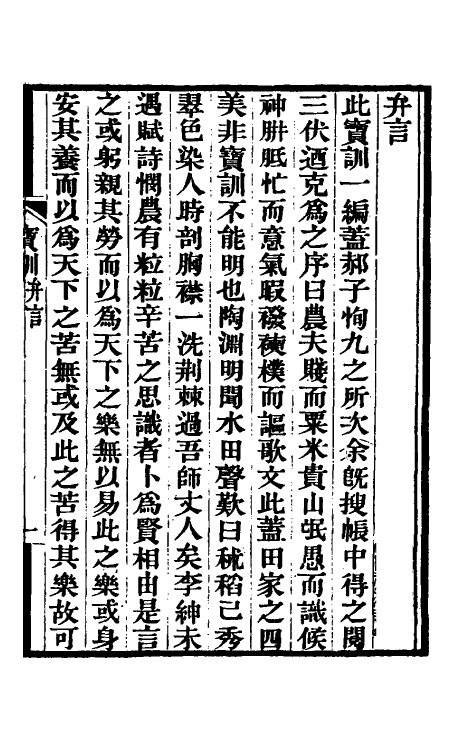 弁言
此寶訓一編蓋郝子恂九之所次余旣搜帳中得之閱
三伏迺克爲之序曰農夫賤而粟米貴山氓愚而識候
神胼胝忙而意氣暇襏襫樸而謳歌文此蓋田家之四
美非寶訓不能明也陶淵明聞水田聲歎曰秫稻已秀
翠色染人時剖胸襟一洗荆棘過吾師丈人矣李紳未
遇賦詩憫農有粒粒辛苦之思識者卜爲賢相由是言
之或躬親其勞而以爲天下之樂無以易此之樂或身
安其養而以爲天下之苦無或及此之苦得其樂故可
寶訓弁言
一